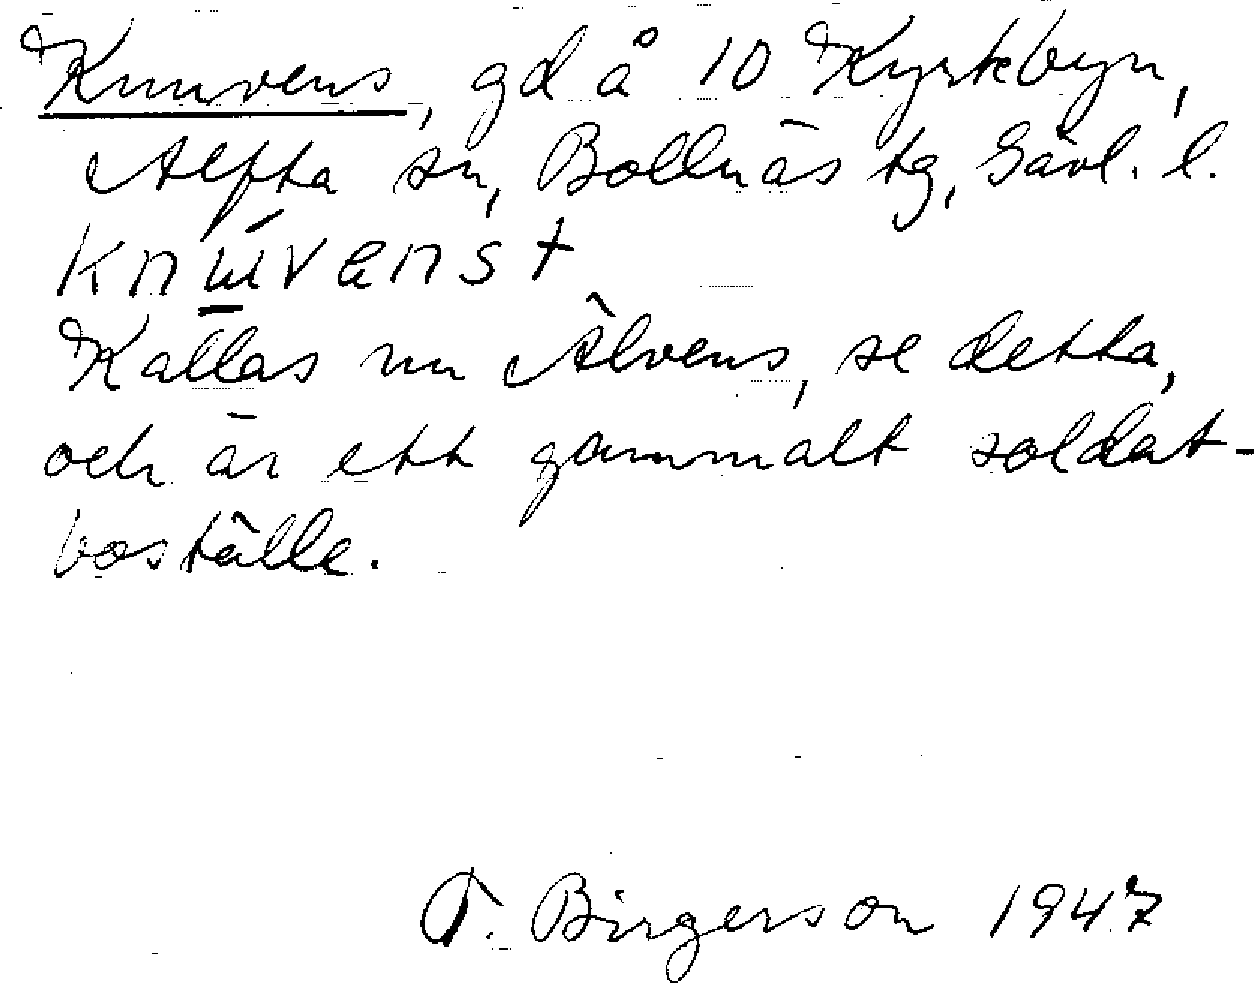 Knuvens, gd å 10 Kyrkbyn,
Alfta sn, Bollnäs tg, Gävl. l.
knɯ́vɐnst
Kallas nu Älvens, se detta,
och är ett gammalt soldat-
boställe.
T. Birgerson 1947